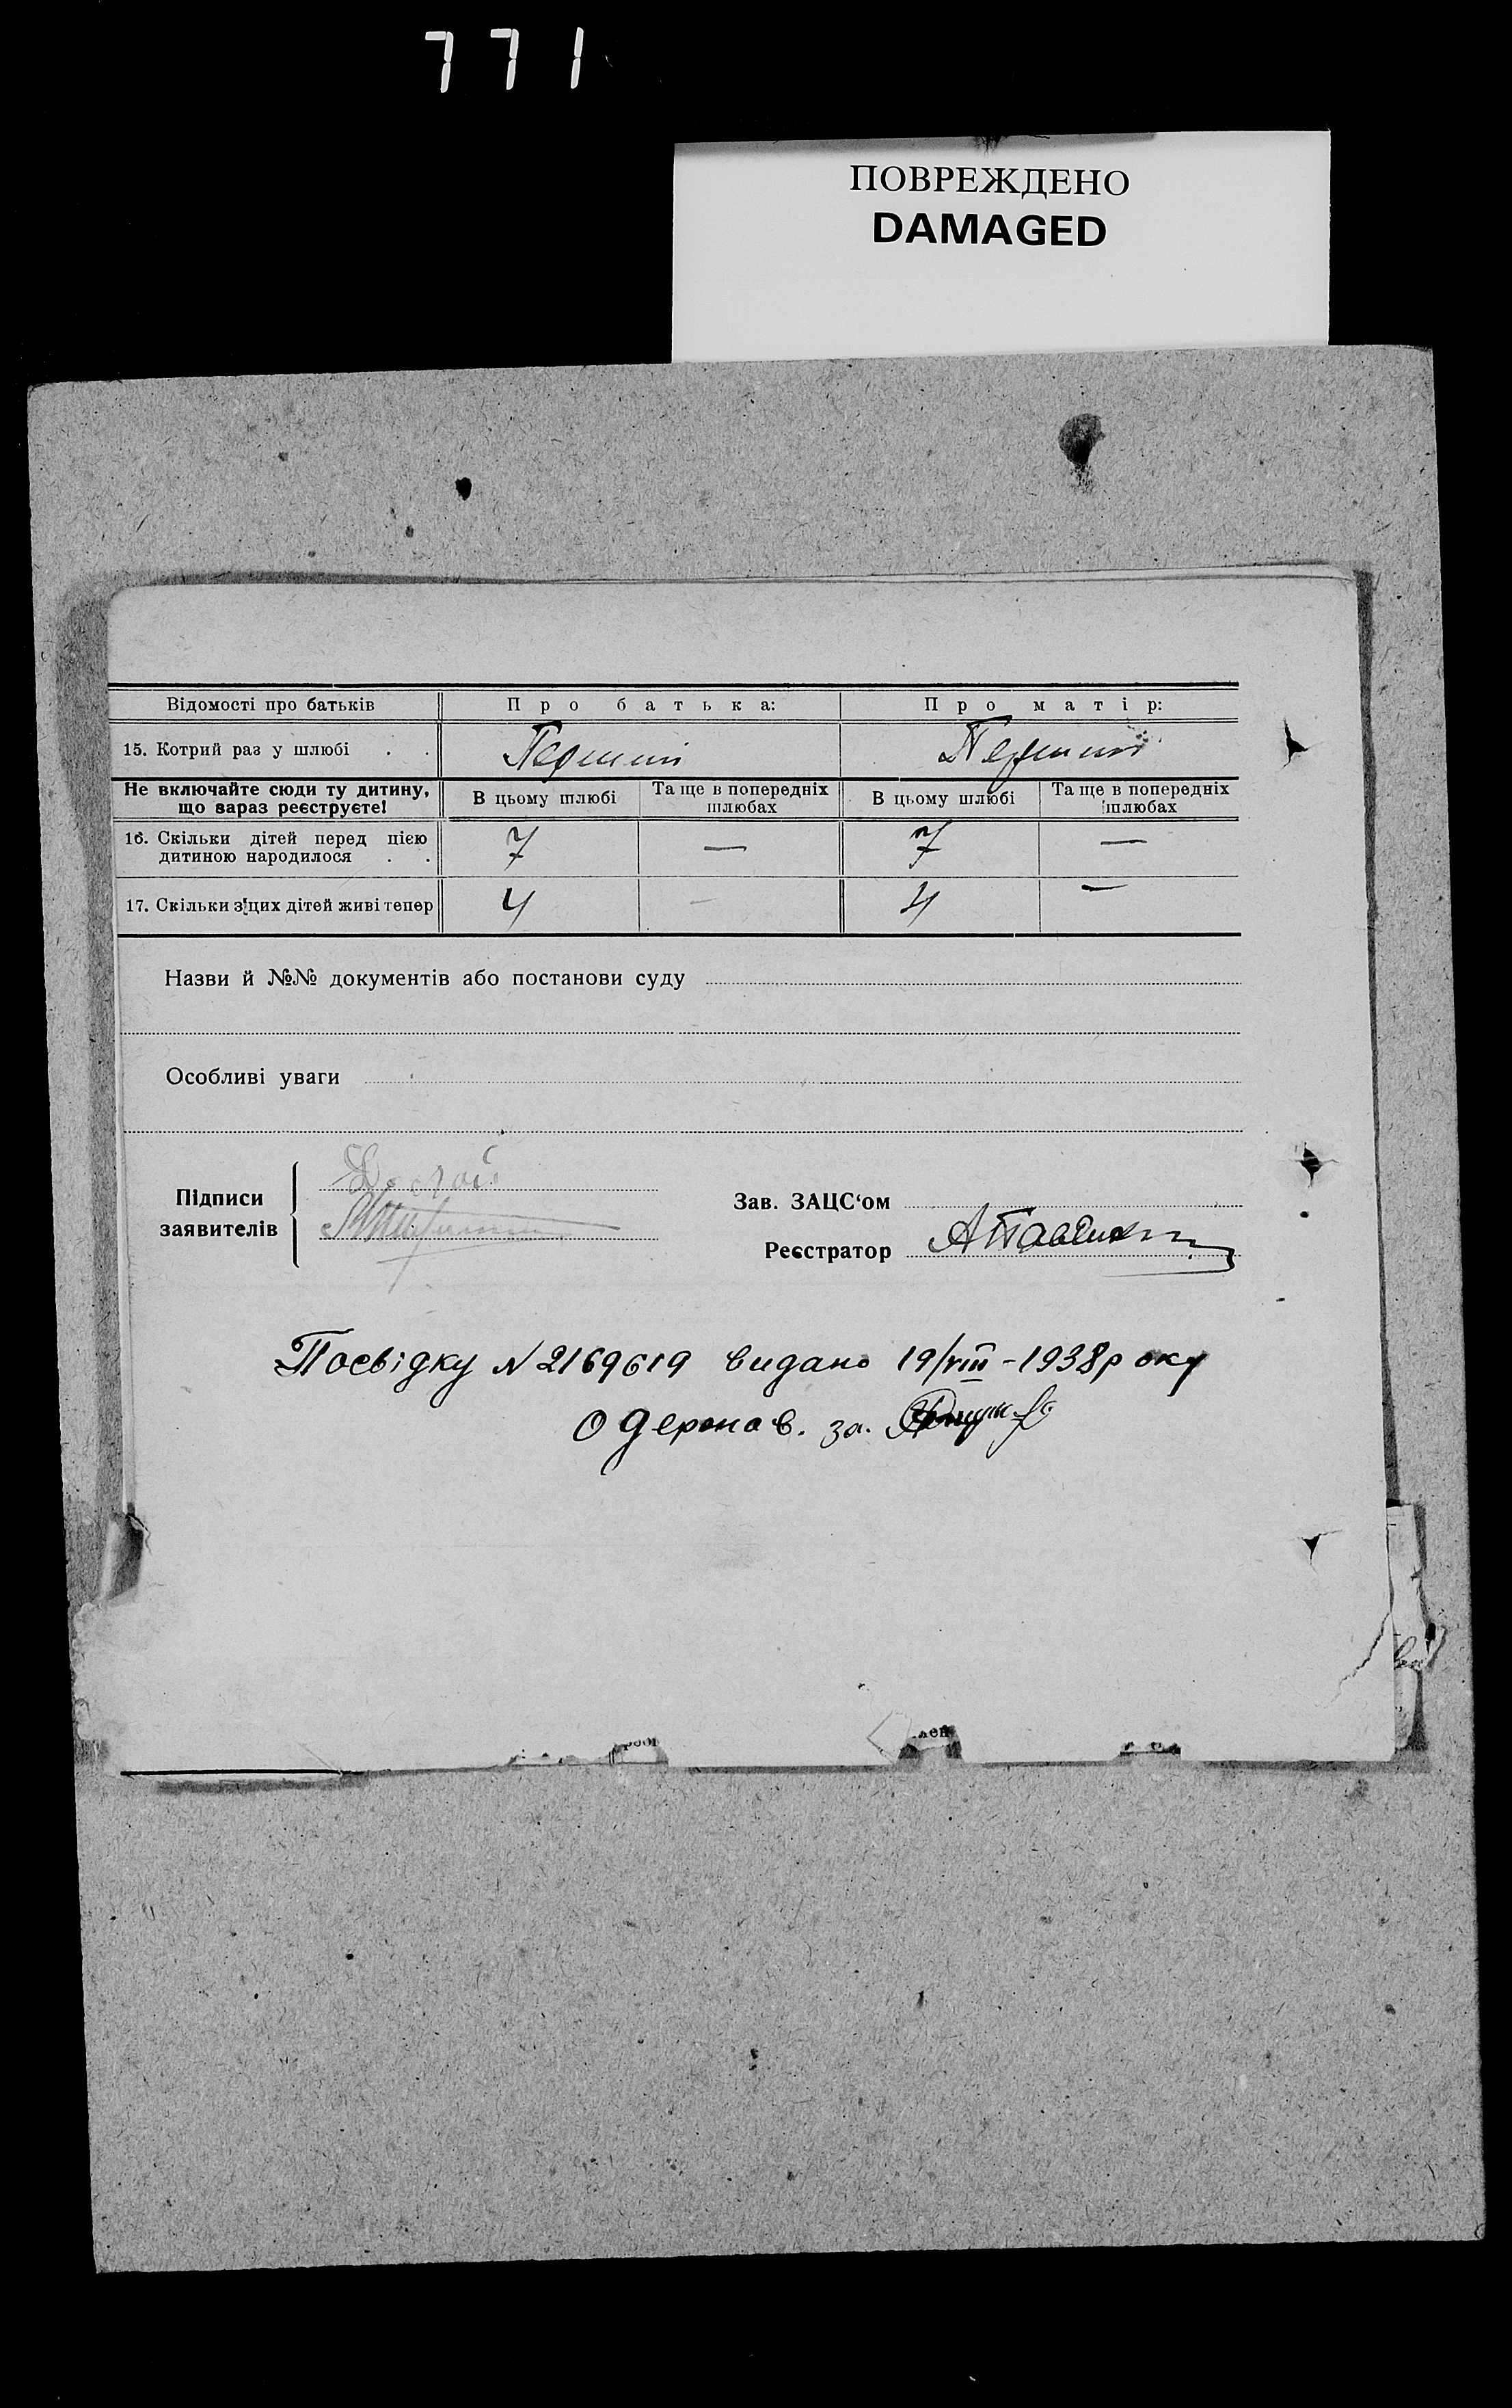 771
ПОВРЕЖДЕНО
DAMAGED
Відомості про батьків П р о б а т ь к а: П р о м а т і р:
15. Котрий раз у шлюбі . . Перший Перший
Не включайте сюди ту дитину, що зараз реєструєте! В цьому шлюбі Та ще в попередніх шлюбах В цьому шлюбі Та ще в попередніх шлюбах
16. Скільки дітей перед цією
дитиною народилося . . 7 — 7 —
17. Скільки з цих дітей живі тепер 4 — 4 —
Назви й №№ документів або постанови суду
Особливі уваги
Підписи
заявителів
Зав. ЗАЦС‘ом
Реєстратор
Посвідку N 2169619 видано 19/VIII - 1938 року
за.